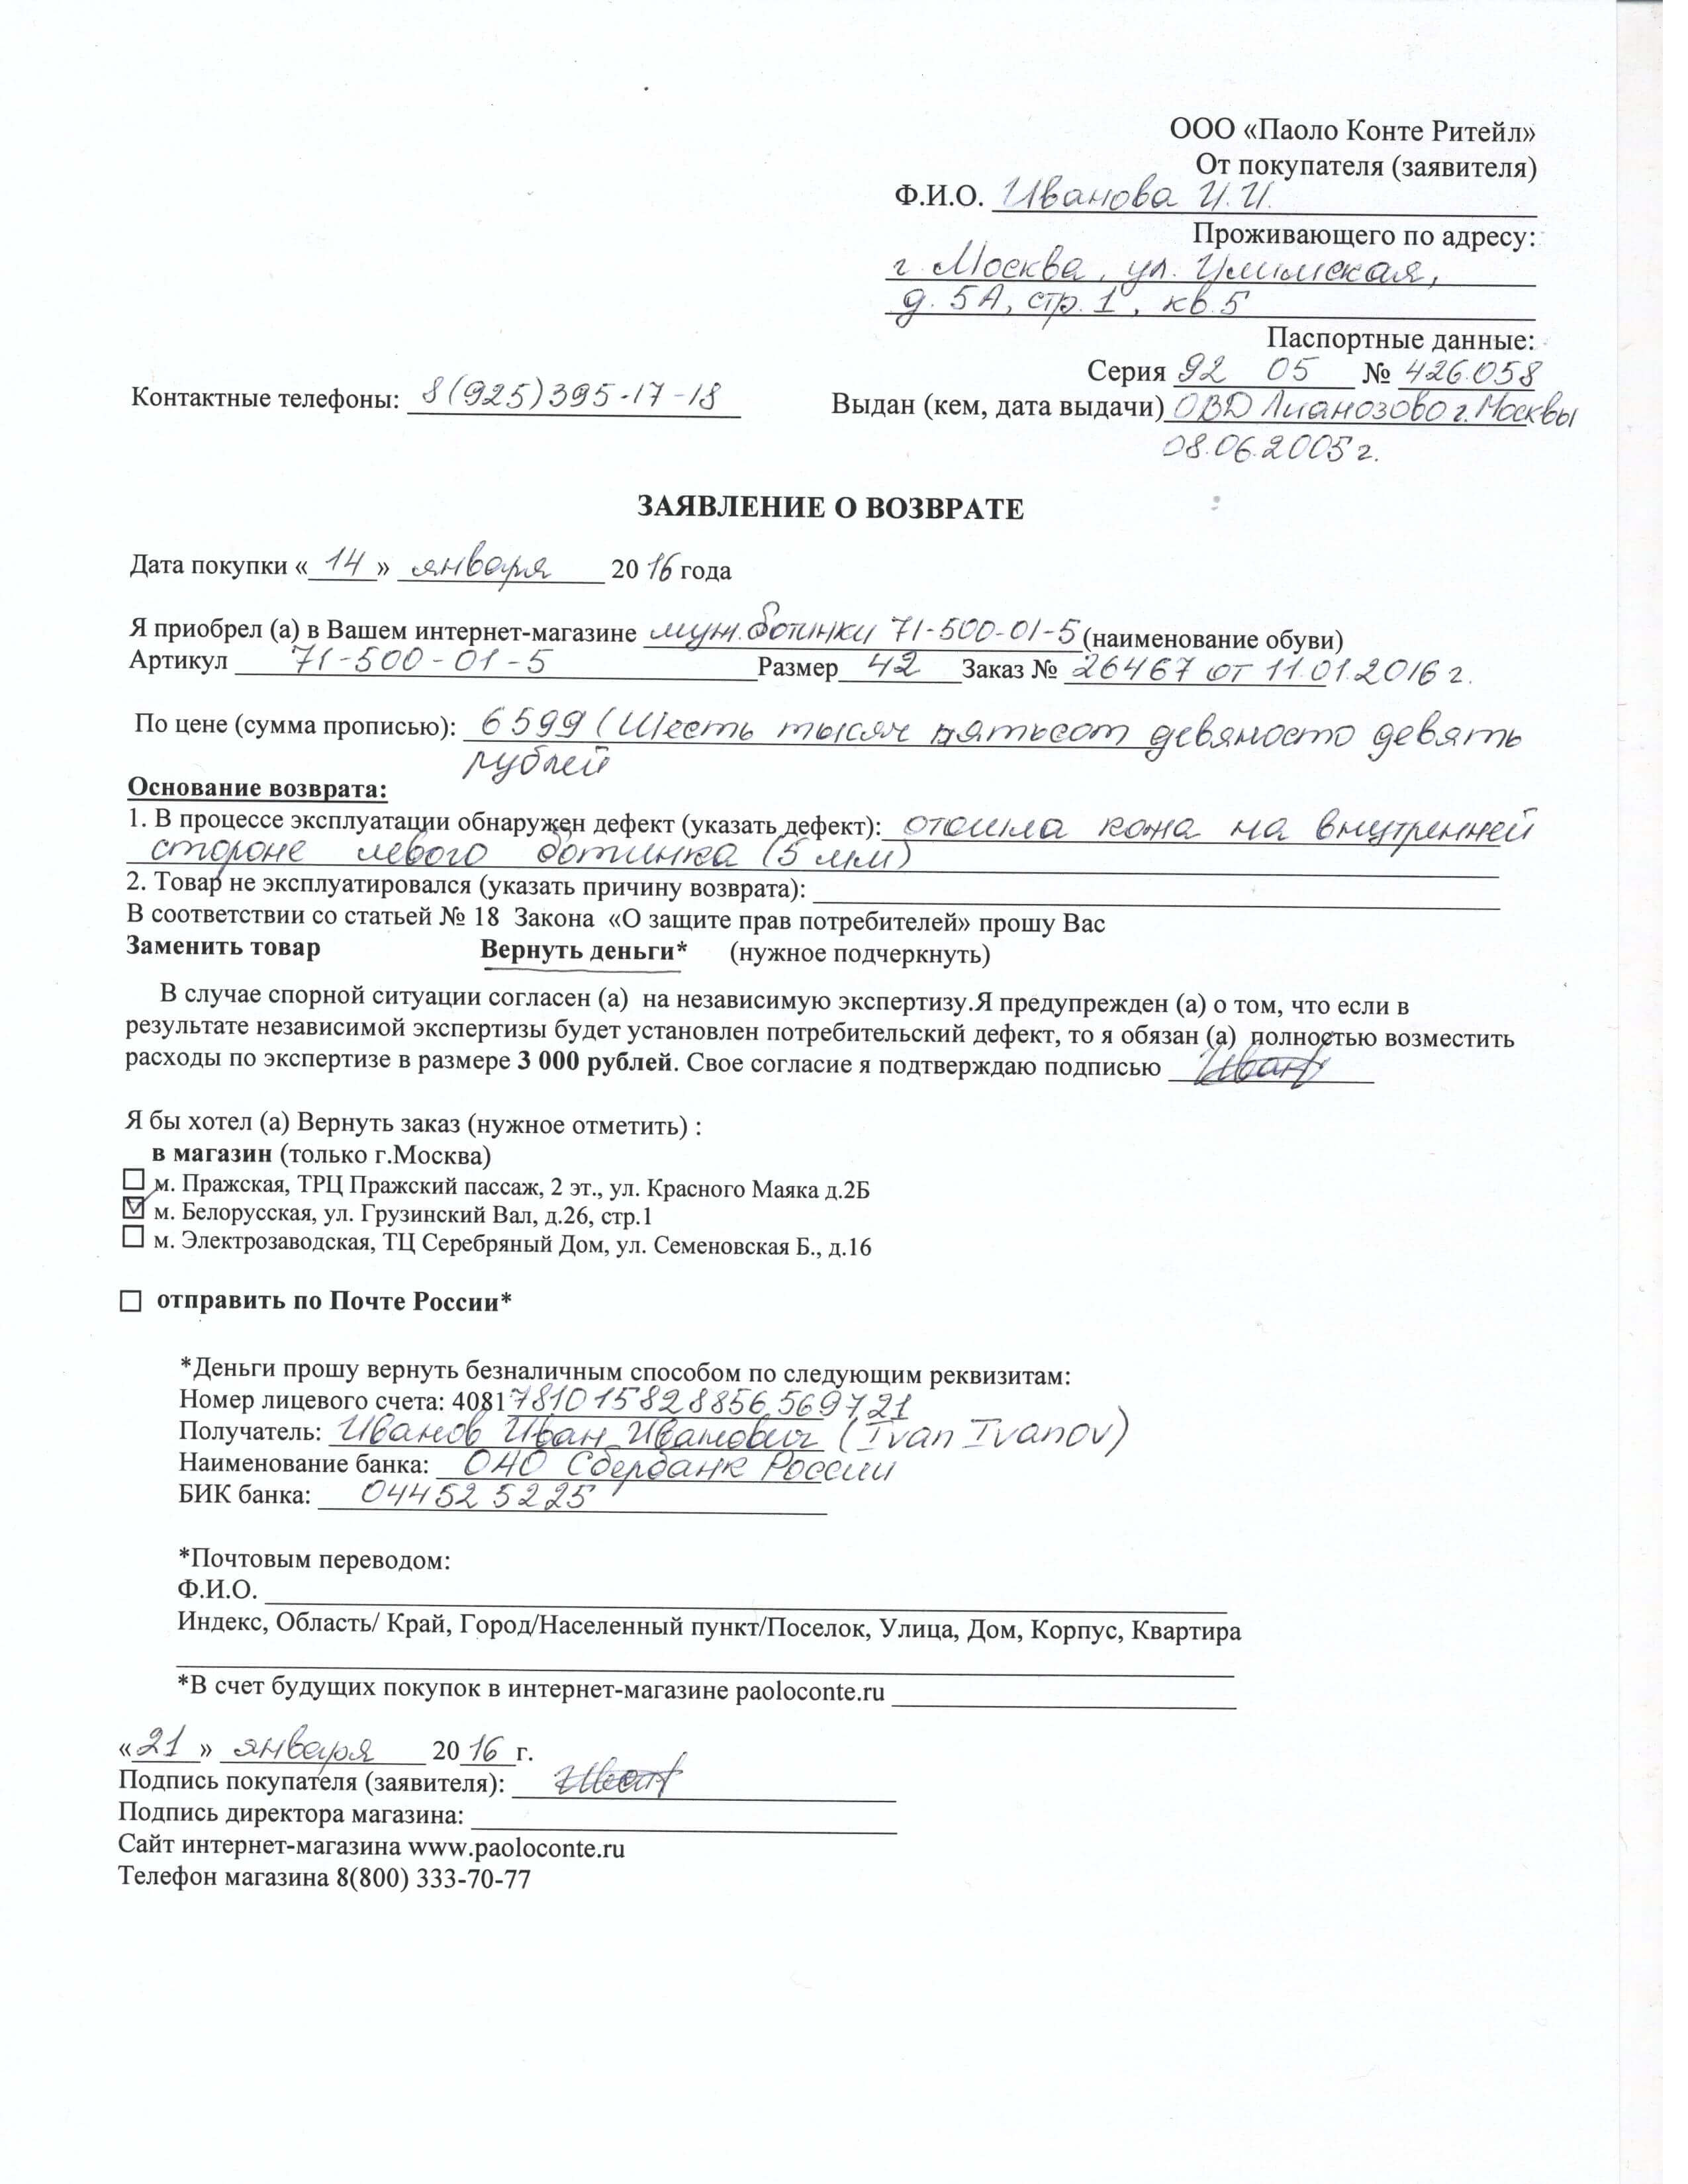 ООО «Паоло Конте Ритейл»
От покупателя (заявителя)
Ф.И.О. Иванова И.И.
Проживающего по адресу:
г. Москва, ул. Илимская,
д. 5А, стр. 1, кв. 5
Паспортные данные:
Серия 92 05 № 426.058
Контактные телефоны: 8(925)395-17-18 Выдан (кем, дата выдачи) ОВД Лианозово г. Москвы
08.06.2005 г.
ЗАЯВЛЕНИЕ О ВОЗВРАТЕ
Дата покупки «14» января 2016 года
Я приобрел (а) в Вашем интернет-магазине муж. ботинки 71-500-01-5 (наименование обуви)
Артикул 71-500-01-5 Размер 42 Заказ № 26467 от 11.01.2016 г.
По цене (сумма прописью): 6599 (Шесть тысяч пятьсот девяносто девять
рублей
Основание возврата:
1. В процессе эксплуатации обнаружен дефект (указать дефект): отошла кожа на внутренней
стороне левого ботинка (5 мм)
2. Товар не эксплуатировался (указать причину возврата):
В соответствии со статьей № 18 Закона «О защите прав потребителей» прошу Вас
Заменить товар Вернуть деньги* (нужное подчеркнуть)
В случае спорной ситуации согласен (а) на независимую экспертизу.Я предупрежден (а) о том, что если в
результате независимой экспертизы будет установлен потребительский дефект, то я обязан (а) полностью возместить
расходы по экспертизе в размере 3 000 рублей. Свое согласие я подтверждаю подписью
Я бы хотел (а) Вернуть заказ (нужное отметить) :
в магазин (только г.Москва)
м. Пражская, ТРЦ Пражский пассаж, 2 эт., ул. Красного Маяка д.2Б
м. Белорусская, ул. Грузинский Вал, д.26, стр.1
м. Электрозаводская, ТЦ Серебряный Дом, ул. Семеновская Б., д.16
отправить по Почте России*
*Деньги прошу вернуть безналичным способом по следующим реквизитам:
Номер лицевого счета: 4081781015828856569721
Получатель: Иванов Иван Иванович (Ivan Ivanov)
Наименование банка: ОАО Сбербанк России
БИК банка: 044525225
*Почтовым переводом:
Ф.И.О.
Индекс, Область/ Край, Город/Населенный пункт/Поселок, Улица, Дом, Корпус, Квартира
*В счет будущих покупок в интернет-магазине paoloconte.ru
«21» января 2016 г.
Подпись покупателя (заявителя):
Подпись директора магазина:
Сайт интернет-магазина www.paoloconte.ru
Телефон магазина 8(800) 333-70-77